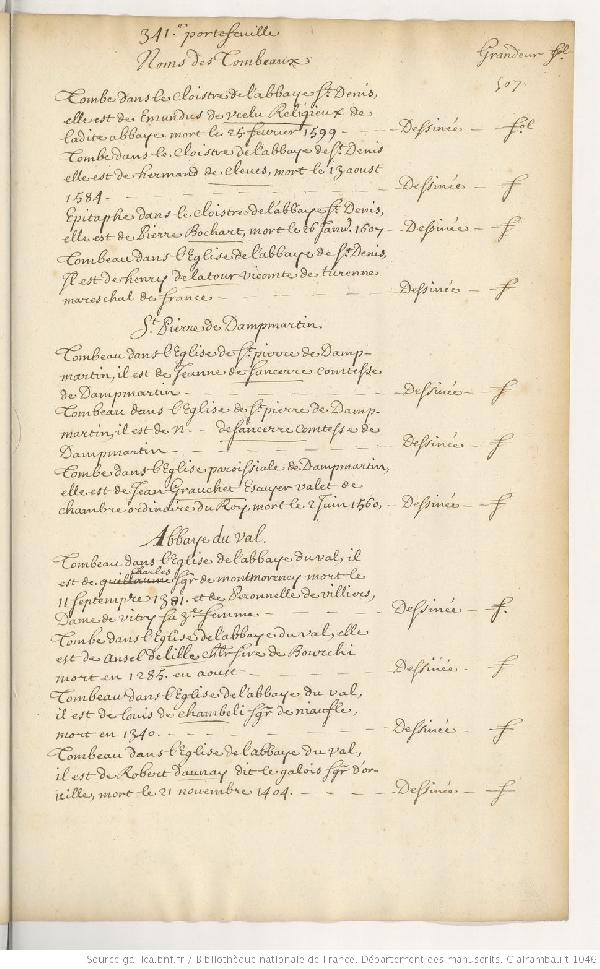 341.e portefeuille
Noms des Tombeaux.
Grandeur fol.
507.
Tombe dans le Cloistre de l'abbaye St. Denis,
elle est de Emundus de vrelu Religieux de
ladite abbaye mort le 25 fevrier 1599 - Dessinée - fol
Tombe dans le Cloistre de l'abbaye de St. Denis
elle est de hermand de Cleves, mort le 13 aoust
1584 - Dessinée - f
Epitaphe dans le Cloistre de l'abbaye St. Denis,
elle est de Pierre Rochart, mort le 16 Janv. 1607 - Dessinée - f
Tombeau dans l'Eglise de l'abbaye de St. Denis,
Il est de henry de la tour vicomte de turenne
mareschal de france - Dessinée - f
St. Pierre de Dampmartin.
Tombeau dans l'Eglise de St. pierre de Damp-
martin, il est de Jeanne de sancerre comtesse
de Dampmartin - Dessinée - f
Tombeau dans l'Eglise de St. pierre de Damp-
martin, il est de N - - de sancerre Comtesse de
Dampmartin - Dessinée - f
Tombe dans l'Eglise paroissiale de Dampmartin,
elle est de Jean Grauchet Escuyer valet de
chambre ordinaire du Roy, mort le 2 Juin 1560, - Dessinée - f
Abbaye du Val.
Tombeau dans l'Eglise de l'abbaye du val, il
est de guillaume Charles sgr. de montmorency mort le
11 septempre 1381. et de Peronnelle de villiers,
Dame de vitry sa 3.e femme - Dessinée - f.
Tombe dans l'Eglise de l'abbaye du val, elle
est de Ansel de lille chlr. sire de Bourchi
mort en 1285. en aoust - Dessinée - f
Tombeau dans l'Eglise de l'abbaye du val,
il est de louis de chambeli sgr. de niaufle,
mort en 1340. - Dessinée - f
Tombeau dans l'Eglise de l'abbaye du val,
il est de Robert Daunay dit le galois sgr. d'or
ville, mort le 21 novembre 1404. - Dessinée - f
Source gallica.bnf.fr / Bibliothèque nationale de France. Département des manuscrits. Clairambault 1046